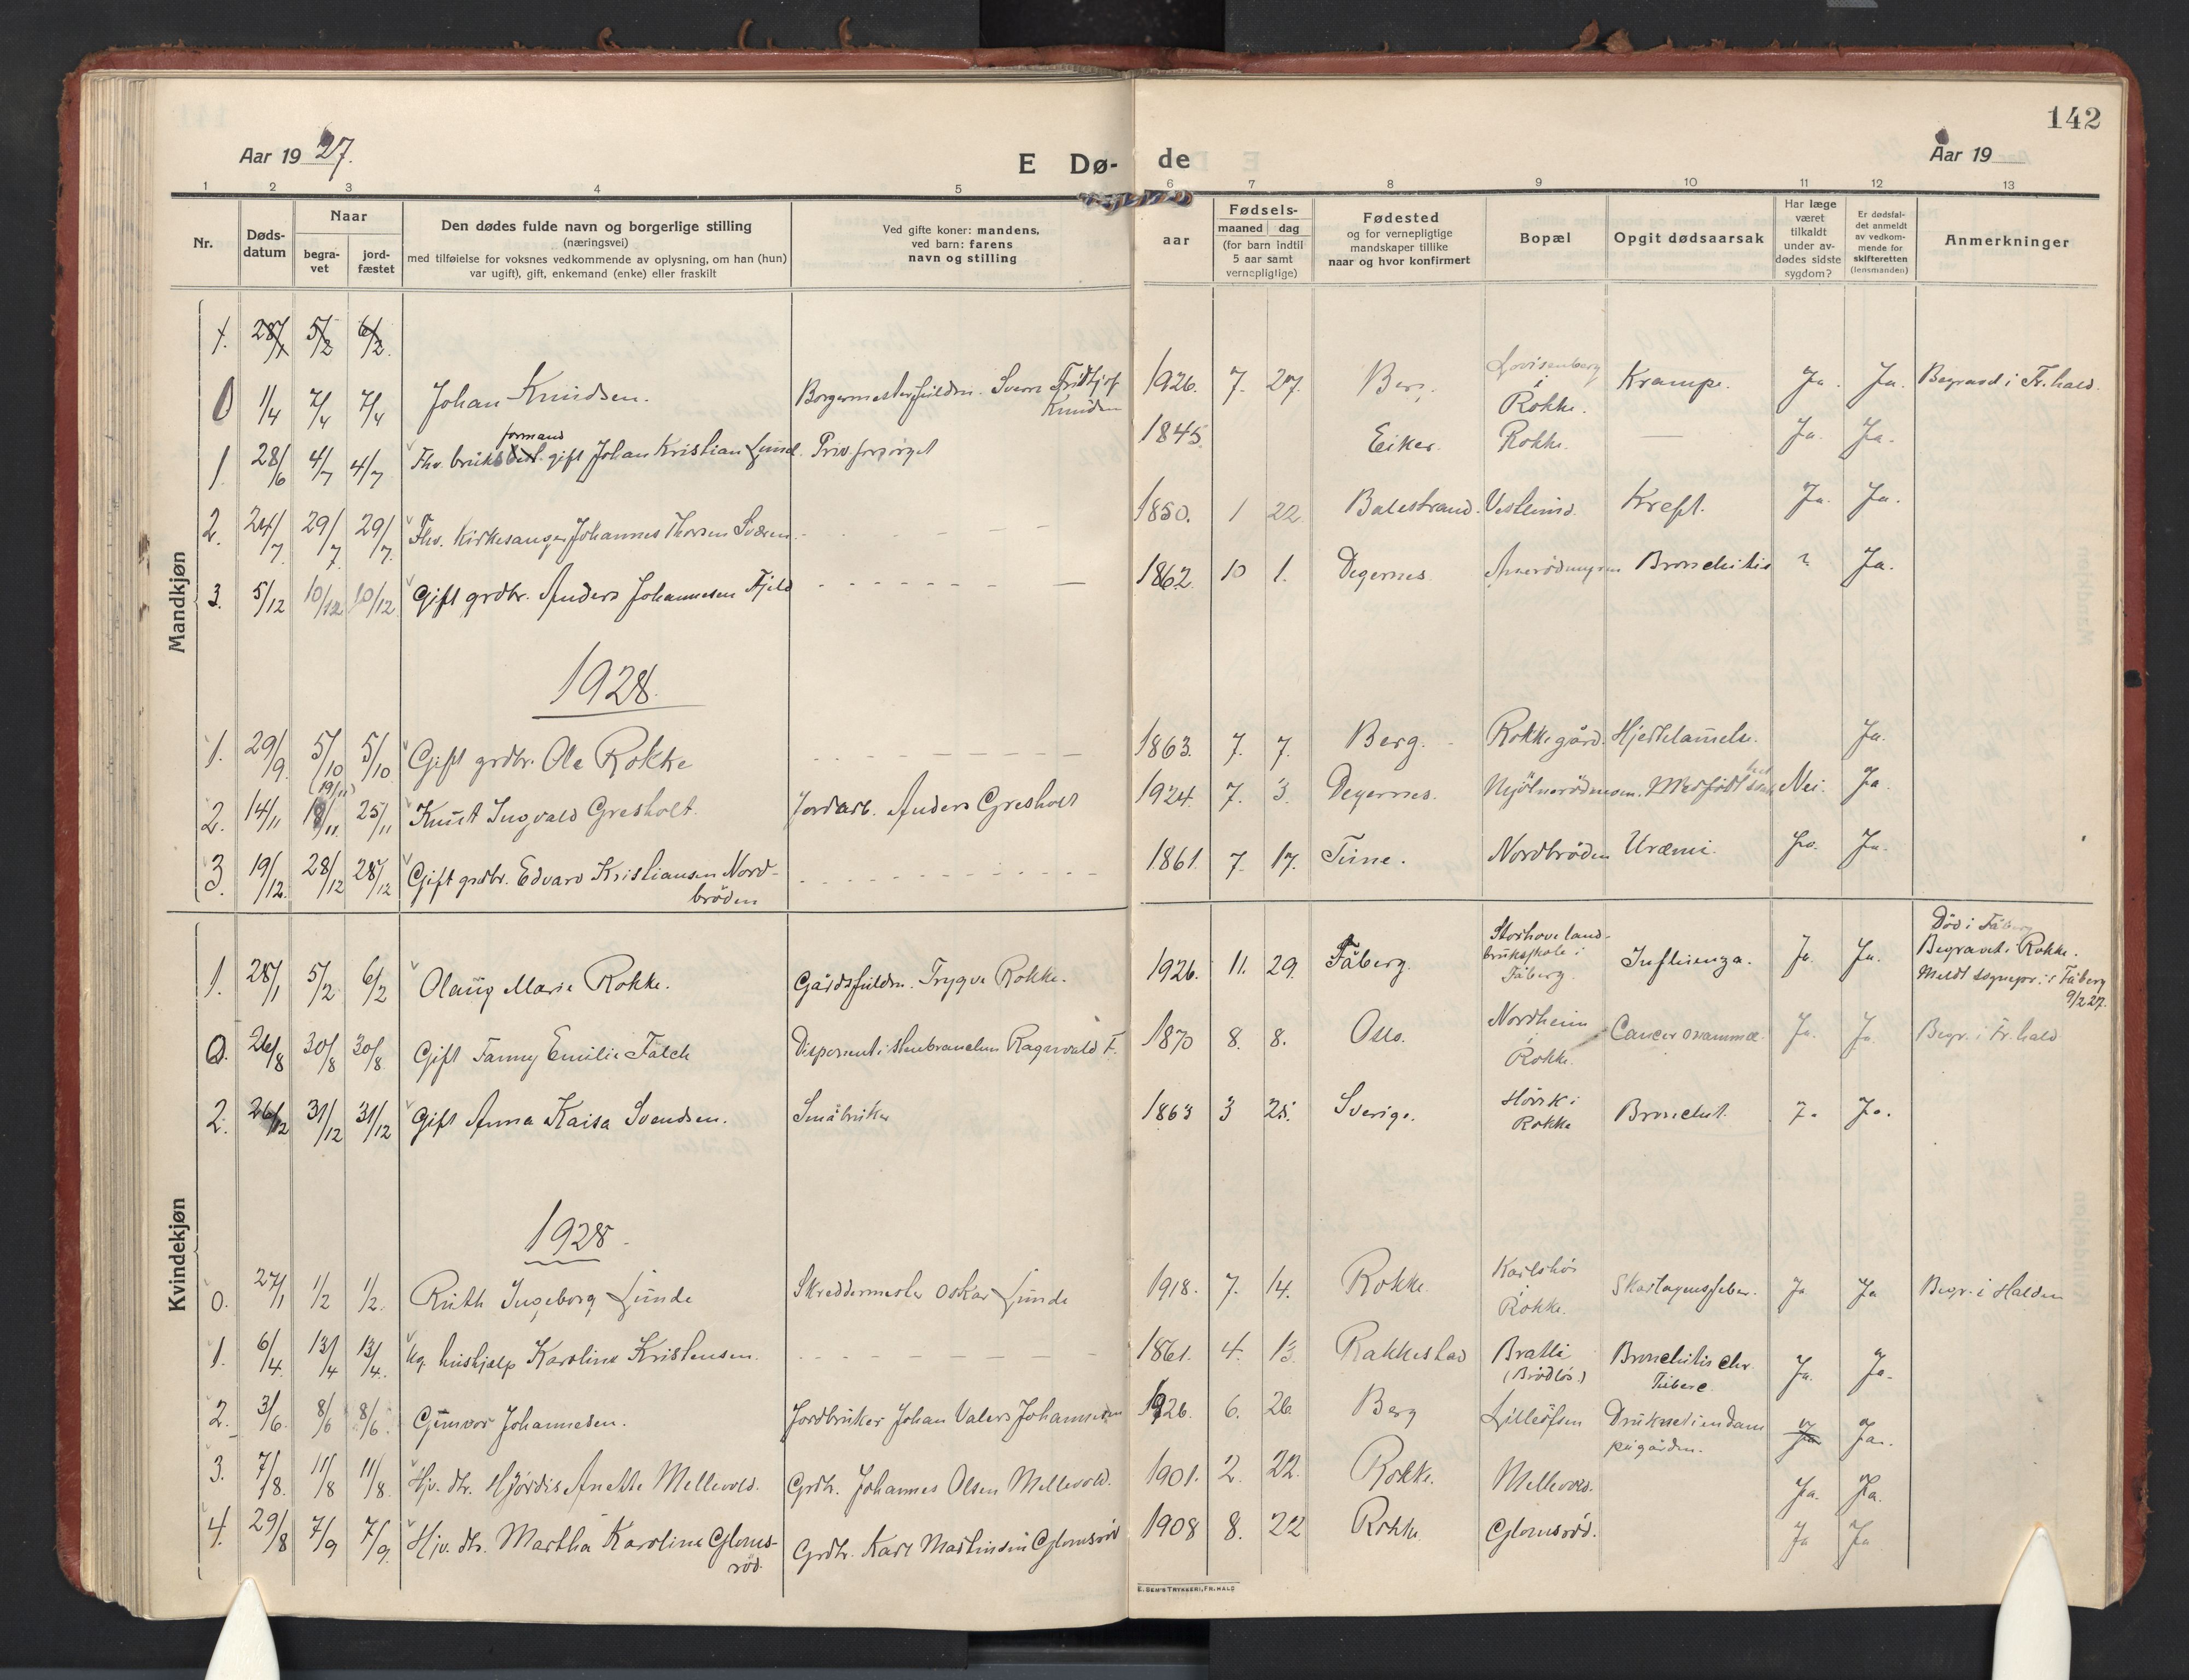 142
Aar 1927.
E Dø-
de
Aar 19
1 2 3 4 5 6 7 8 9 10 11 12 13
Nr.
Døds-
datum
Naar
begra-
vet
jord-
fæstet
Den dødes fulde navn og borgerlige stilling
(næringsvei)
med tilføielse for voksnes vedkommende av oplysning, om han (hun)
var ugift), gift, enkemand (enke) eller fraskilt
Ved gifte koner: mandens,
ved barn: farens
navn og stilling
Fødsels-
aar
maaned dag
(for barn indtil
5 aar samt
vernepligtige)
Fødested
og for vernepligtige
mandskaper tillike
naar og hvor konfirmert
Bopæl
Opgit dødsaarsak
Har læge
været
tilkaldt
under av-
dødes sidste
sygdom?
Er dødsfal-
det anmeldt
av vedkom-
mende for
skifteretten
(lensmanden)
Anmerkninger
Mandkjøn
1. 28/1 5/2 6/2
0 1/4 7/4 7/4 Johan Knudsen. Borgermesterfuldm. Sverre Fridtjof Knudsen 1926. 7. 27. Berg. Lovisenberg i Rokke. Krampe. Ja. Ja. Begravd i Fr.hald.
1. 28/6 4/7 4/7 Fhv. bruksformand gift Johan Kristian Lund. Priv. forsørget 1845. Eiker. Rokke. — Ja. Ja.
2. 24/7. 29/7. 29/7. Fhv. Kirkesanger Johannes Thorsen Sværen 1850. 1 22. Balestrand. Vestlund. Kreft. Ja. Ja.
3. 5/12 10/12 10/12 Gift grdbr. Anders Johannesen Fjeld 1862. 10 1. Degernes. Bronchitis ? Ja.
1928.
1. 29/9. 5/10 5/10 Gift grdbr. Ole Rokke 1863. 7. 7. Berg. Rokke gård. Hjertelammelse. Ja.
2. 14/11 18/11 (19/11) 25/11 Knut Ingvald Gresholt. Jordarb. Anders Gresholt 1924. 7. 3. Degernes. Medfødt Nei. Ja.
3. 19/12. 28/12 28/12 Gift grdbr. Edvard Kristiansen Nord-
brøden 1861. 7. 17. Tune. Nordbrøden Uræmi. Ja. Ja.
Kvindekjøn
1. 28/1 5/2 6/2 Olaug Marie Rokke. Gårdsfuldm. Trygve Rokke. 1926. 11. 29. Fåberg. Storhove land-
bruksskole i
Fåberg Influenza. Ja. Ja. Død i Fåberg
Begravet i Rokke.
Meldt sognepr. i Fåberg
9/2 27.
0. 26/8 30/8 30/8 Gift Fanny Emilie Falch Disponent i stenbranchen Ragnvald F. 1870 8. 8. Oslo. Nordheim i Rokke. Cancer mammae. Ja. Ja. Begr. i Fr.hald
2. 26/12 31/12 31/12 Gift Anna Kaisa Svendsen. Småbruker 1863 3 25. Sverige. i
Rokke Bronchit. J. Ja.
1928.
0. 27/1 1/2 1/2. Ruth Ingeborg Lunde Skreddermester Oskar Lunde 1918. 7. 14. Rokke. Karlshös
i
Rokke. Skarlagensfeber. Ja Ja Begr. i Halden
1. 6/4. 13/4 13/4. Ug. hushjælp Karoline Kristensen. 1861. 4. 13. Rakkestad Bratli
(Brødløs) Bronchitis chr.
Tuberc. Ja. Ja.
2. 3/6. 8/6 8/6. Gunvor Johannesen. Jordbruker Johan Valers Johannesen 1926. 6. 26 Berg Druknet i en dam
på gården. Ja Ja.
3. 7/8. 11/8 11/8. Hjv. dtr. Hjørdis Anette Mellevold. Grdbr. Johannes Olsen Mellevold. 1901. 2. 22. Rokke. Mellevold. Ja. Ja.
4. 29/8 7/9 7/9. Hjv. dtr. Martha Karoline Gloms-
röd. Grdbr. Karl Martinsen Glomsröd 1908 8. 22 Rokke Glomsröd. Ja Ja
E. SEM'S TRYKKERI, FR.HALD